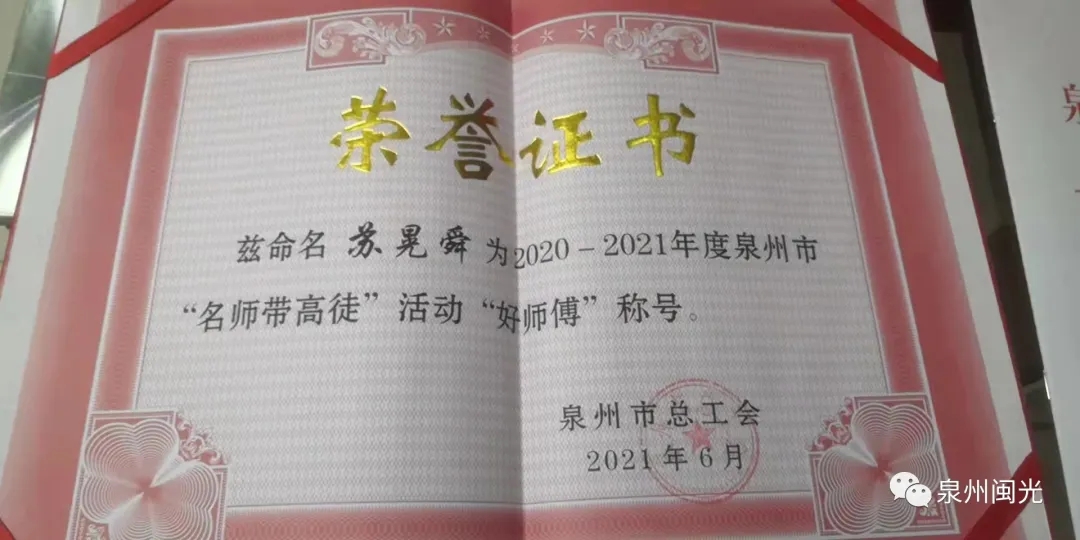 荣誉证书
兹命名 苏晃舜 为2020－2021年度泉州市
“名师带高徒”活动“好师傅”称号。
泉州市总工会
2021年6月
泉州闽光